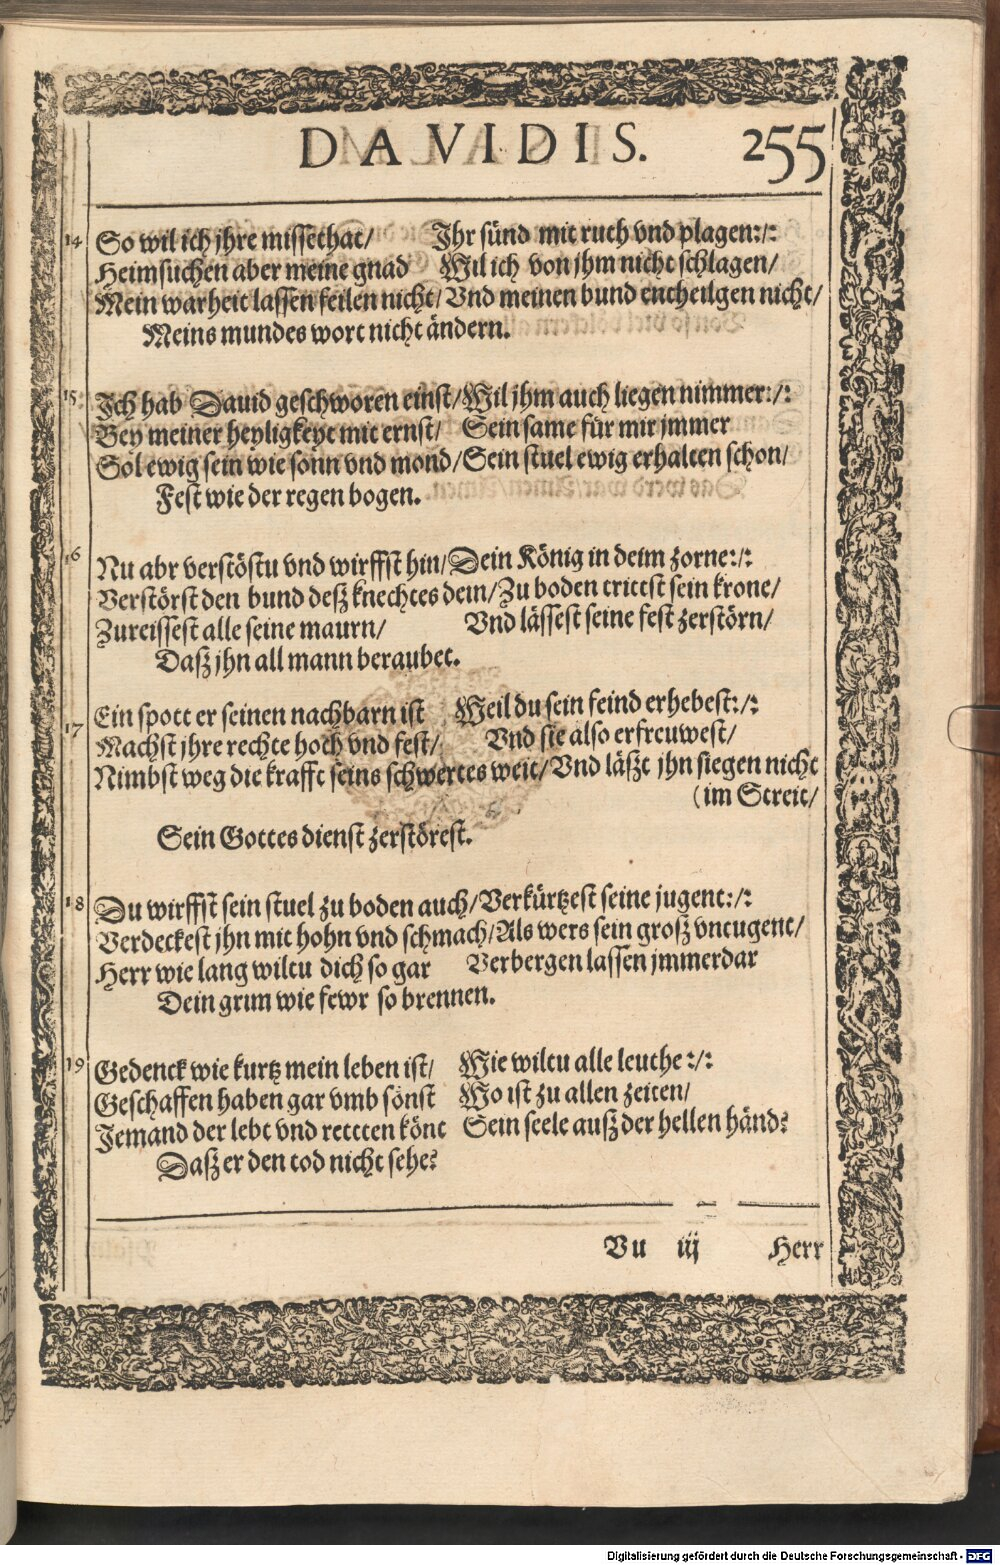 DAVIDIS. 255
14 So wil ich jhre missethat/ Ihr sünd mit ruth vnd plagen:/:
Heimsuchen aber meine gnad Wil ich von jhm nicht schlagen/
Mein warheit lassen feilen nicht/ Vnd meinen bund entheilgen nicht/
Meins mundes wort nicht ändern.
15 Ich hab Dauid geschworen einst/ Wil jhm auch liegen nimmer:/:
Bey meiner heyligkeyt mit ernst/ Sein same für mir jmmer
Sol ewig sein wie sonn vnd mond/ Sein stuel ewig erhalten schon/
Fest wie der regen bogen.
16 Nu abr verstöstu vnd wirffst hin/ Dein König in deim zorne:/:
Verstörst den bund desz knechtes dein/ Zu boden trittst sein krone/
Zureissest alle seine maurn/ Vnd lässest seine fest zerstörn/
Dasz jhn all mann beraubet.
17 Ein spott er seinen nachbarn ist Weil du sein feind erhebest:/:
Machst jhre rechte hoch vnd fest/ Vnd sie also erfreuwest/
Nimbst weg die krafft seins schwertes weit/ Vnd läszt jhn siegen nicht
(im Streit/
Sein Gottes dienst zerstörest.
18 Du wirffst sein stuel zu boden auch/ Verkürtzest seine jugent:/:
Verdeckest jhn mit hohn vnd schmach/ Als wers sein grosz vntugent/
Herr wie lang wiltu dich so gar Verbergen lassen jmmerdar
Dein grim wie fewr so brennen.
19 Gedenck wie kurtz mein leben ist/ Wie wiltu alle leuthe:/:
Geschaffen haben gar vmb sonst Wo ist zu allen zeiten/
Jemand der lebt vnd rettten könt Sein seele ausz der hellen händ?
Dasz er den tod nicht sehe?
Vu iij Herr
Digitalisierung gefördert durch die Deutsche Forschungsgemeinschaft - DFG